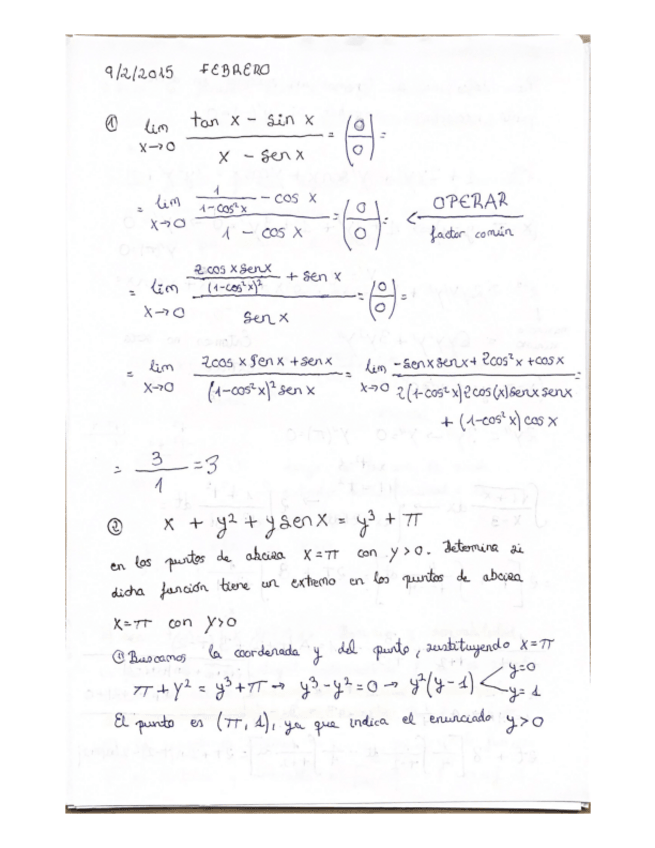 9/2/2015 FEBRERO
① lim x→0 (tan x - sin x)/(x - sen x) = (0/0) =
= lim x→0 (1/(1-cos²x) - cos x)/(1 - cos x) = (0/0) = ← OPERAR factor común
= lim x→0 (2cos x sen x/(1-cos²x)² + sen x)/(sen x) = (0/0) =
= lim x→0 (2cos x sen x + sen x)/((1-cos²x)² sen x) = lim x→0 (-sen x sen x + 2cos²x + cos x)/(2(1-cos²x)2cos(x)sen x sen x + (1-cos²x) cos x) =
= 3/1 = 3
② x + y² + y sen x = y³ + π
en los puntos de abcisa x=π con y>0. Determina si
dicha función tiene un extremo en los puntos de abcisa
x=π con y>0
① Buscamos la coordenada y del punto, sustituyendo x=π
π + y² = y³ + π → y³ - y² = 0 → y²(y-1) < y=0 y=1
El punto es (π, 1), ya que indica el enunciado y>0